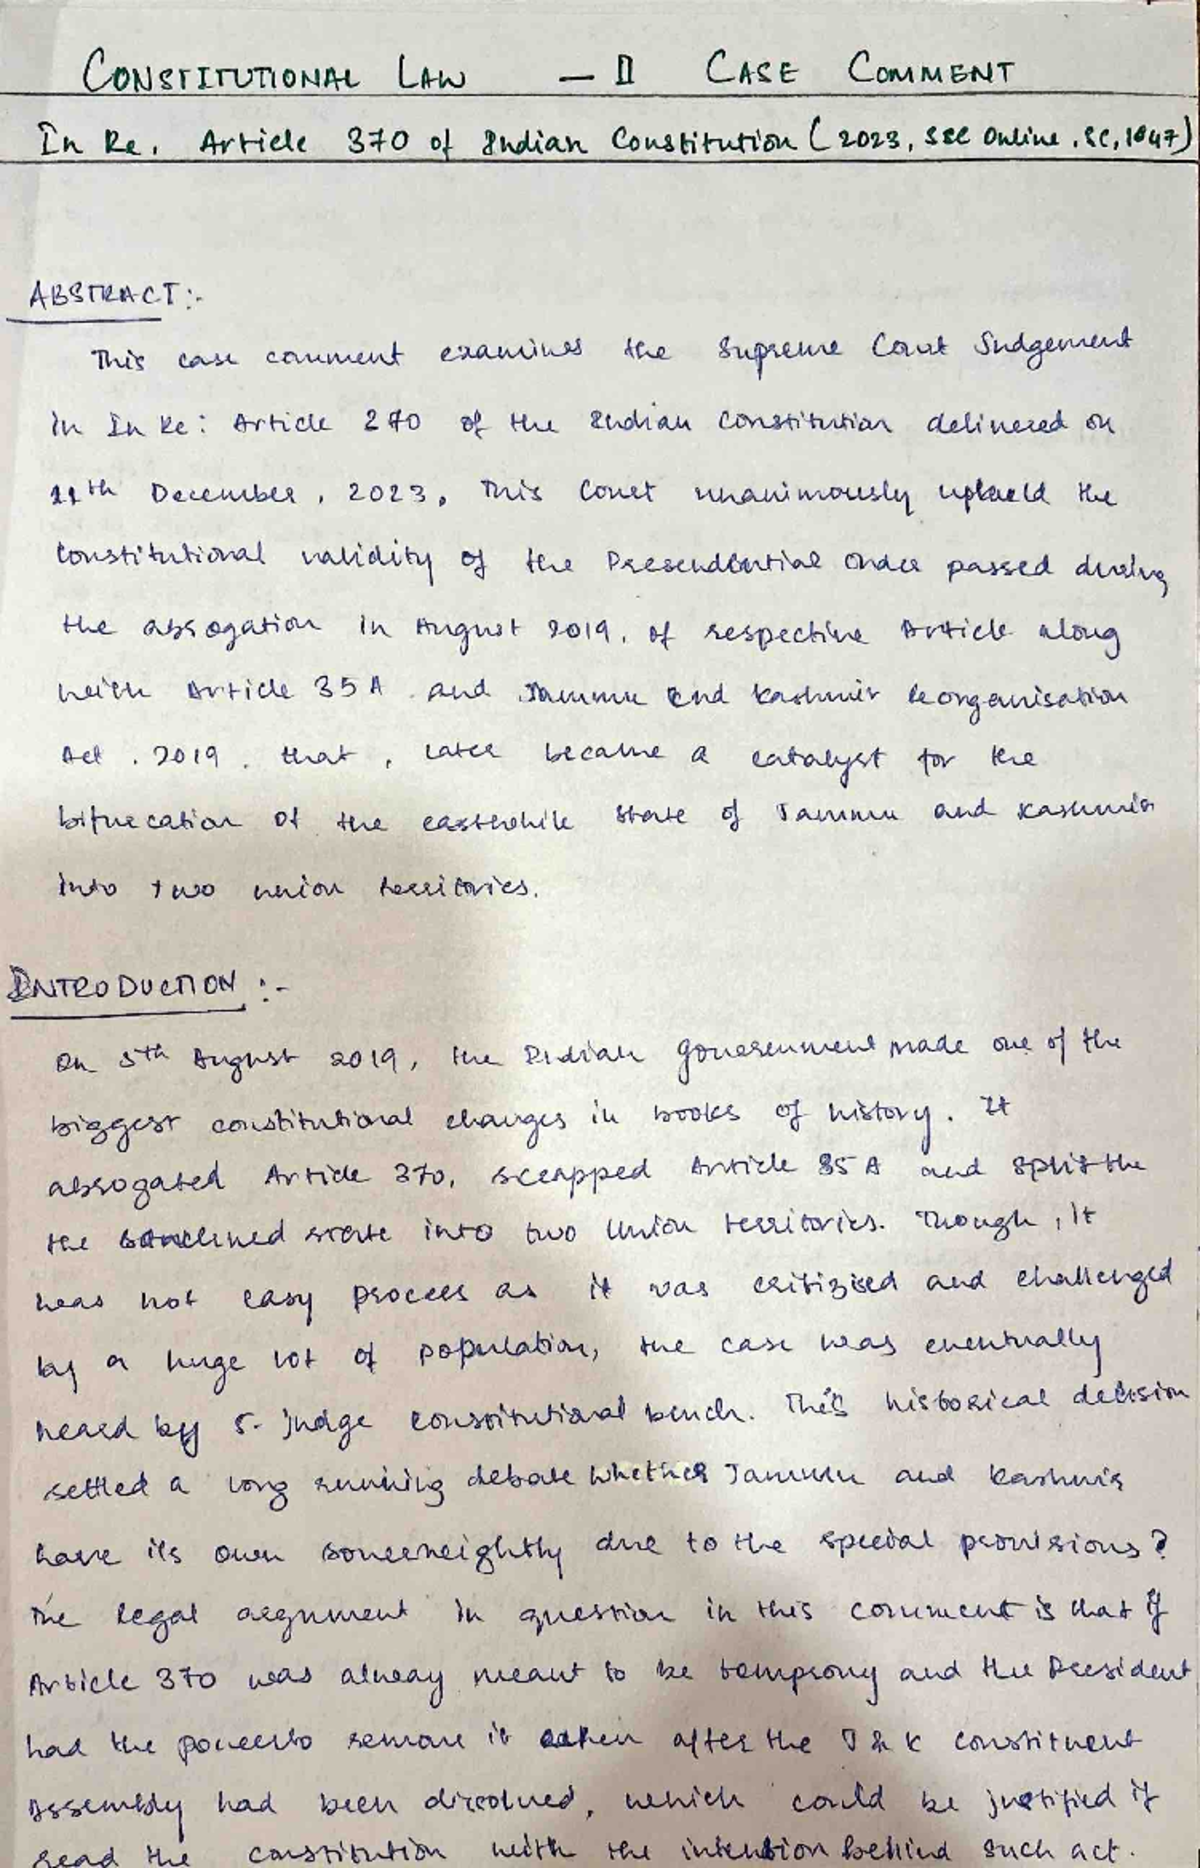 CONSTITUTIONAL LAW - II CASE COMMENT
In Re. Article 370 of Indian Constitution (2023, SSC Online. SC, 1047)
ABSTRACT :-
This case comment examines the Supreme Court Judgement
in In Re: Article 270 of the Indian Constitution delivered on
11th December, 2023. This Court unanimously upheld the
constitutional validity of the Order passed during
the abrogation in August 2019, of respective Article along
with Article 35A and Jammu and Kashmir Reorganisation
Act. 2019. that, later became a catalyst for the
bifurcation of the State of Jammu and Kashmir
into two union territories.
INTRODUCTION :-
On 5th August 2019, the Indian government made one of the
biggest constitutional changes in books of history. It
abrogated Article 370, scrapped Article 35A and split the
the state into two Union territories. Though, it
was not easy process as it was critizised and challenged
by a huge lot of population, the case was eventually
heard by 5-judge constitutional bench. This historical decision
settled a long running debate whether Jammu and Kashmir
have its own due to the special provisions?
The legal argument in question in this comment is that if
Article 370 was alway meant to be temprory and the President
had the power to remove it after the J & K constituent
Assembly had been dissolved, which could be justified if
read the constitution with the intention behind such act.